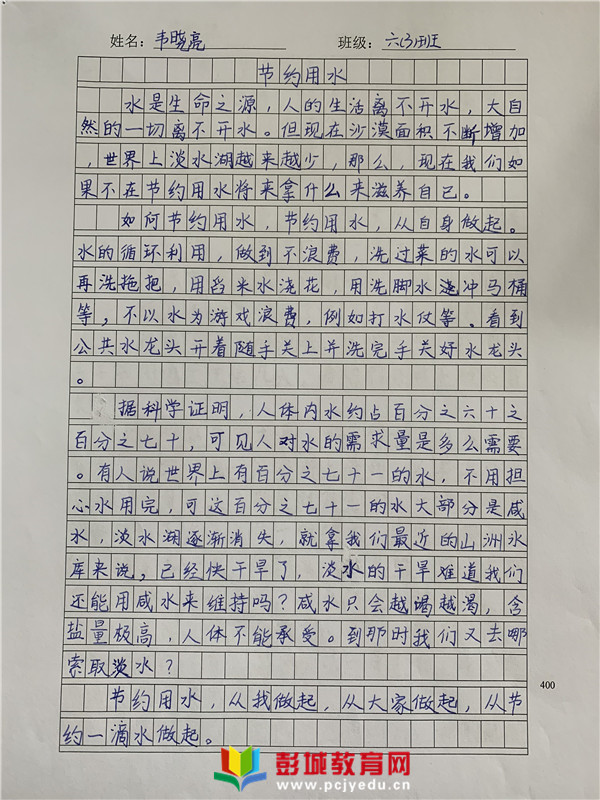 姓名：韦晓亮 班级：六（3）班
节约用水
水是生命之源，人的生活离不开水，大自
然的一切离不开水。但现在沙漠面积不断增加
，世界上淡水湖越来越少，那么，现在我们如
果不在节约用水将来拿什么来滋养自己。
如何节约用水，节约用水，从自身做起。
水的循环利用，做到不浪费，洗过菜的水可以
再洗拖把，用舀米水浇花，用洗脚水冲马桶
等，不以水为游戏浪费，例如打水仗等。看到
公共水龙头开着随手关上并洗完手关好水龙头
。
据科学证明，人体内水约占百分之六十之
百分之七十，可见人对水的需求量是多么需要
。有人说世界上有百分之七十一的水，不用担
心水用完，可这百分之七十一的水大部分是咸
水，淡水湖逐渐消失，就拿我们最近的山洲水
库来说，已经快干旱了，淡水的干旱难道我们
还能用咸水来维持吗？咸水只会越喝越渴，含
盐量极高，人体不能承受。到那时我们又去哪
索取淡水？
400
节约用水，从我做起，从大家做起，从节
约一滴水做起。
彭城教育网
www.pcjyedu.cn